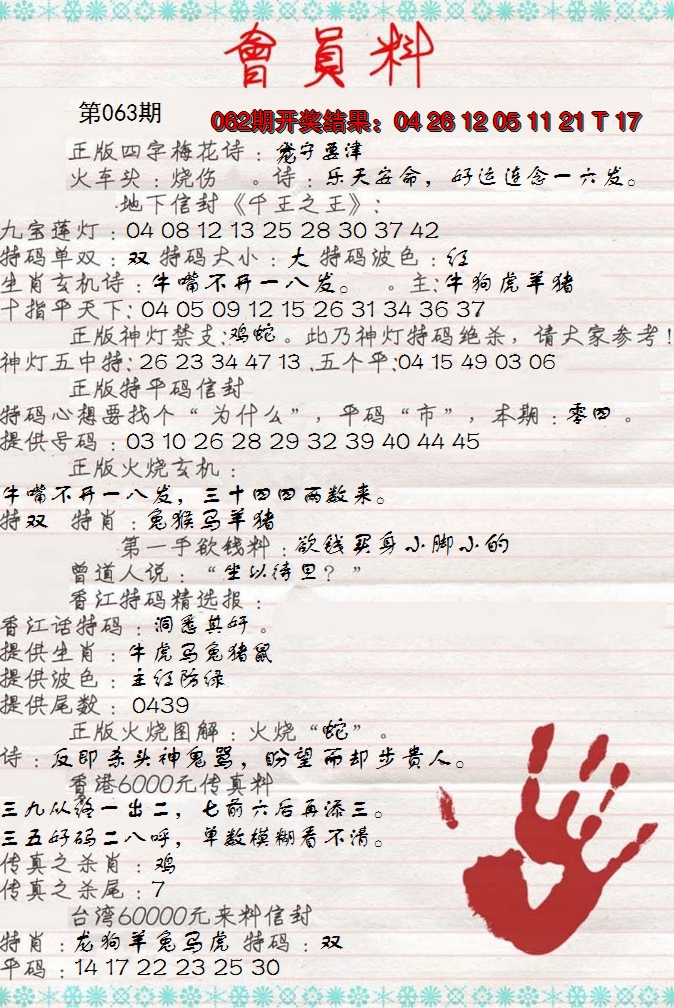 會員料
第063期
062期开奖结果：04 26 12 05 11 21 T 17
正版四字梅花诗：宠守要津
火车头：烧伤 。诗：乐天安命，好运连念一六发。
地下信封《千王之王》：
九宝莲灯：04 08 12 13 25 28 30 37 42
特码单双：双 特码大小：大 特码波色：红
生肖玄机诗：牛嘴不开一八发。 。主：牛狗虎羊猪
十指平天下：04 05 09 12 15 26 31 34 36 37
正版神灯禁支：鸡蛇。此乃神灯特码绝杀，请大家参考！
神灯五中特：26 23 34 47 13 .五个平：04 15 49 03 06
正版特平码信封
特码心想要找个“为什么”，平码“市”，本期：零四。
提供号码：03 10 26 28 29 32 39 40 44 45
正版火烧玄机：
牛嘴不开一八发，三十四四两数来。
特双 特肖：兔猴马羊猪
第一手欲钱料：欲钱买身小脚小的
曾道人说：“坐以待旦？”
香江特码精选报：
香江话特码：洞悉其奸。
提供生肖：牛虎马兔猪鼠
提供波色：主红防绿
提供尾数：0439
正版火烧图解：火烧“蛇”。
诗：反即杀头神鬼骂，盼望而却步贵人。
香港6000元传真料
三九从终一出二，七前六后再添三。
三五好码二八呼，单数模糊看不清。
传真之杀肖：鸡
传真之杀尾：7
台湾60000元来料信封
特肖：龙狗羊兔马虎 特码：双
平码：14 17 22 23 25 30